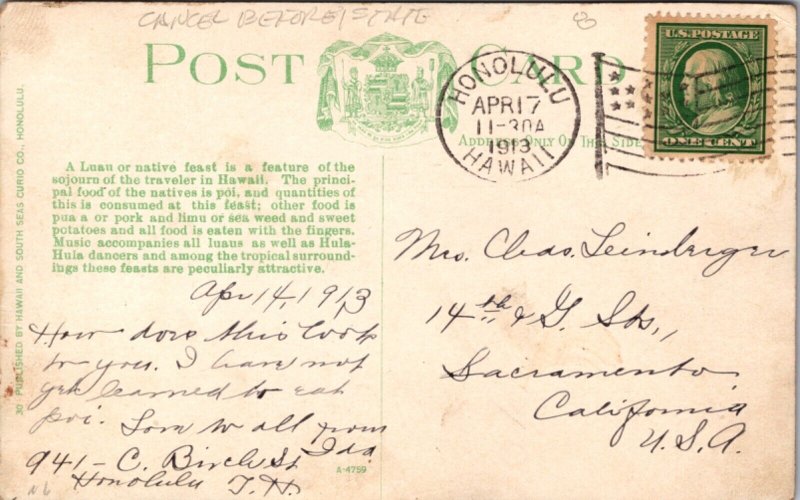 CANCEL BEFORE STATE
8
POST CARD
ADDRESS ONLY ON THIS SIDE
HONOLULU
APR 17
11-30A
1913
HAWAII
U.S. POSTAGE
ONE CENT
A Luau or native feast is a feature of the
sojourn of the traveler in Hawaii. The princi-
pal food of the natives is poi, and quantities of
this is consumed at this feast; other food is
pua a or pork and limu or sea weed and sweet
potatoes and all food is eaten with the fingers.
Music accompanies all luaus as well as Hula-
Hula dancers and among the tropical surround-
ings these feasts are peculiarly attractive.
30 PUBLISHED BY HAWAII AND SOUTH SEAS CURIO CO., HONOLULU.
Apr 14, 1913
How does this look
to you. I have not
yet learned to eat
poi. Love to all from
Ida
941 - C. Birch St
Honolulu T.H.
A-4759
Mrs. Chas. Leinberger
14th & G. Sts.,
Sacramento
California
U.S.A.